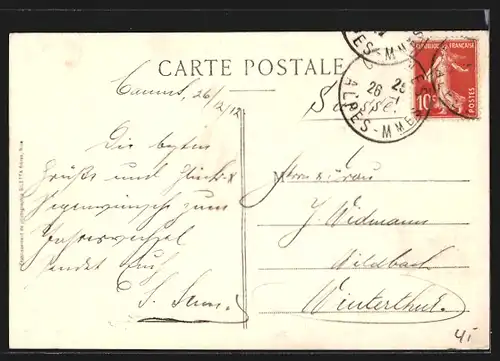 CARTE POSTALE
RÉPUBLIQUE FRANÇAISE
10c
POSTES
26
ALPES-MMES
Cannes, 26/12/12
Die besten
Grüße und Glück- &
Segenswünsche zum
Jahreswechsel
sendet Euch
S.
M
J. Widmann
Wildbach
Winterthur.
4.-